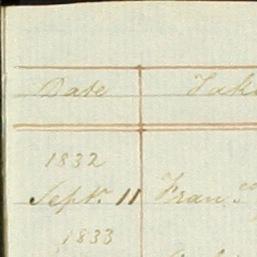 Date
1832
Sept. 11 Fran.co
1833